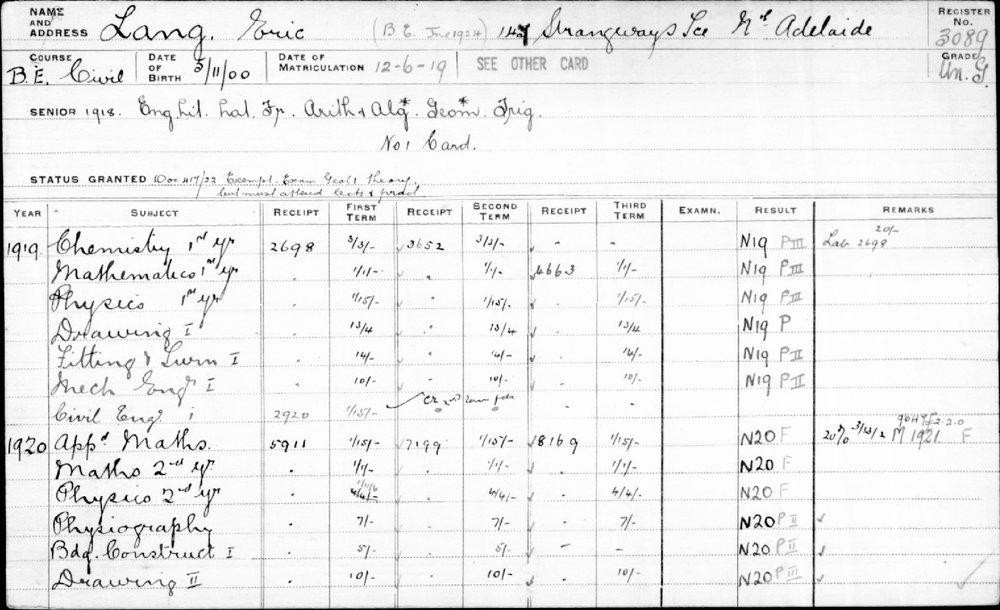 NAME AND ADDRESS Lang, Eric (B.E. June 1924) 147 Strangways Tce Nth Adelaide REGISTER No. 3089
COURSE B.E. Civil DATE OF BIRTH 5/11/00 DATE OF MATRICULATION 12-6-19 SEE OTHER CARD GRADE Un. G.
SENIOR 1918. Eng Lit. Lat. Fr. Arith & Alg* Geom* Trig.
No 1 Card.
STATUS GRANTED Doc 417/22 Exempt. Exam Geol I theory,
but must attend lects & pract
YEAR SUBJECT RECEIPT FIRST TERM RECEIPT SECOND TERM RECEIPT THIRD TERM EXAMN. RESULT REMARKS
1919 Chemistry 1st yr 2698 3/3/- 3652 3/3/- " " N19 P III Lab 2698 20/-
Mathematics 1st yr . 1/1/- " 1/1/- 4663 1/1/- N19 P III
Physics 1st yr . 1/15/- " 1/15/- " 1/15/- N19 P III
Drawing I . 13/4 " 13/4 " 13/4 N19 P
Fitting & Turn I . 14/- " 14/- " 14/- N19 P II
Mech Engg I . 10/- " 10/- " 10/- N19 P II
Civil Engg I 2920 1/15/- Cr 2nd term fees " "
1920 Appd Maths. 5911 1/15/- 7199 1/15/- 8169 1/15/- N20 F 20% 3/13/2 M 1921 F
Maths 2nd yr . 1/1/- " 1/1/- " 1/1/- N20 F
Physics 2nd yr . 4/4/- " 4/4/- " 4/4/- N20 F
Physiography . 7/- " 7/- " 7/- N20 P II
Bdg. Construct I . 5/- " 5/- – – N20 P II
Drawing II . 10/- " 10/- " 10/- N20 P III